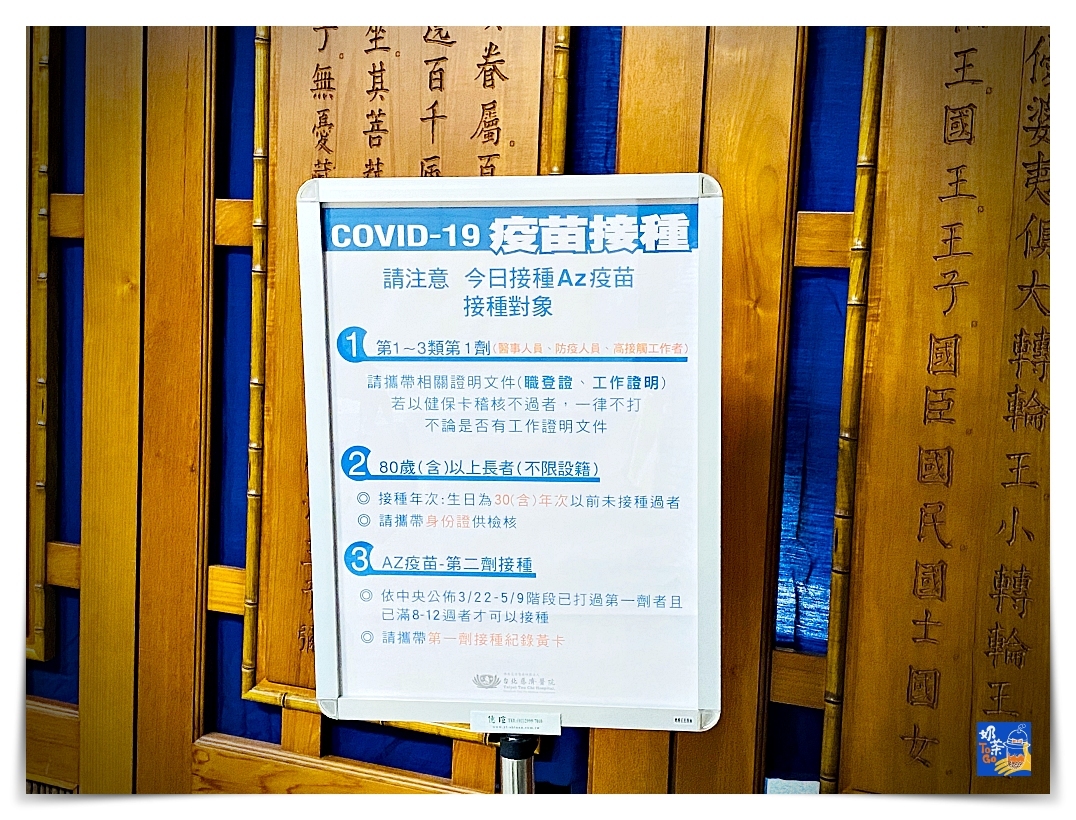 COVID-19 疫苗接種
請注意 今日接種Az疫苗
接種對象
1 第1～3類第1劑(醫事人員、防疫人員、高接觸工作者)
請攜帶相關證明文件(職登證、工作證明)
若以健保卡稽核不過者，一律不打
不論是否有工作證明文件
2 80歲(含)以上長者(不限設籍)
◎ 接種年次:生日為30(含)年次以前未接種過者
◎ 請攜帶身份證供檢核
3 AZ疫苗-第二劑接種
◎ 依中央公佈3/22-5/9階段已打過第一劑者且
已滿8-12週者才可以接種
◎ 請攜帶第一劑接種紀錄黃卡
台北慈濟醫院
眷屬百
百千
坐其菩
無憂
婆夷俱大轉輪王小轉輪王
王國王王子國臣國民國士國女
奶茶
ToGo